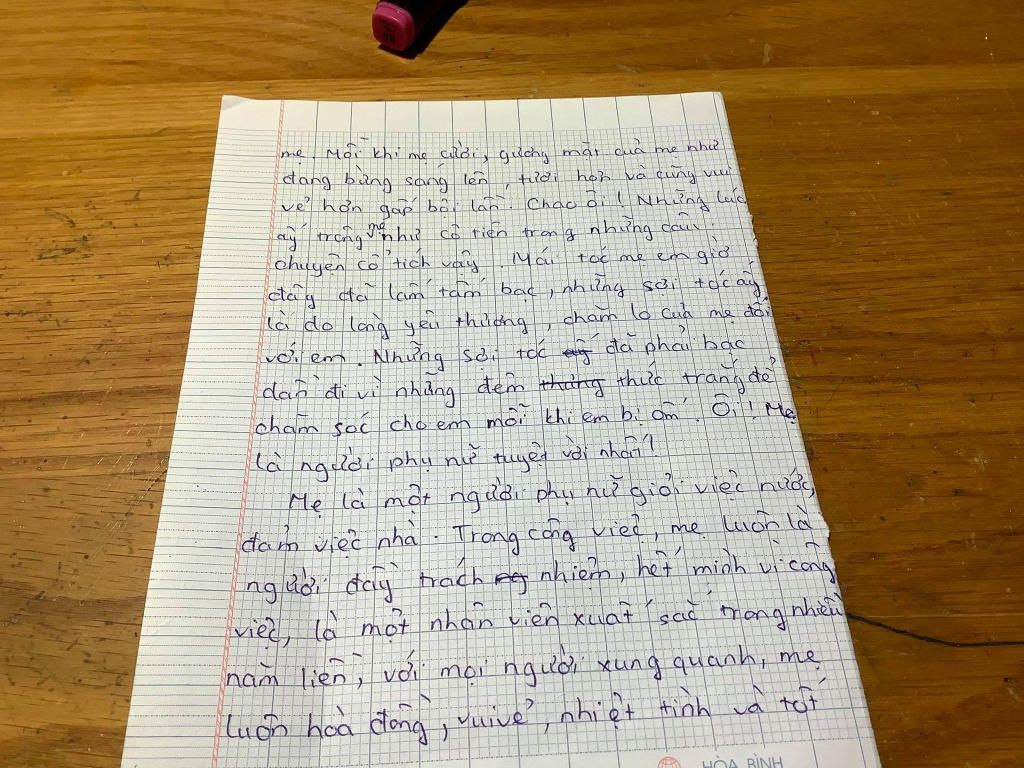 mẹ. Mỗi khi mẹ cười, gương mặt của mẹ như
đang bừng sáng lên, tươi hơn và cũng vui
vẻ hơn gấp bội lần. Chao ôi! Những lúc
ấy trông mẹ như cô tiên trong những câu
chuyện cổ tích vậy. Mái tóc mẹ em giờ
đây đã lấm tấm bạc, những sợi tóc ấy
là do lòng yêu thương, chăm lo của mẹ đối
với em. Những sợi tóc ấy đã phải bạc
dần đi vì những đêm thức trắng để
chăm sóc cho em mỗi khi em bị ốm. Ôi! Mẹ
là người phụ nữ tuyệt vời nhất!
Mẹ là một người phụ nữ giỏi việc nước,
đảm việc nhà. Trong công việc, mẹ luôn là
người đầy trách nhiệm, hết mình vì công
việc, là một nhân viên xuất sắc trong nhiều
năm liền, với mọi người xung quanh, mẹ
luôn hoà đồng, vui vẻ, nhiệt tình và tốt
HÒA BÌNH